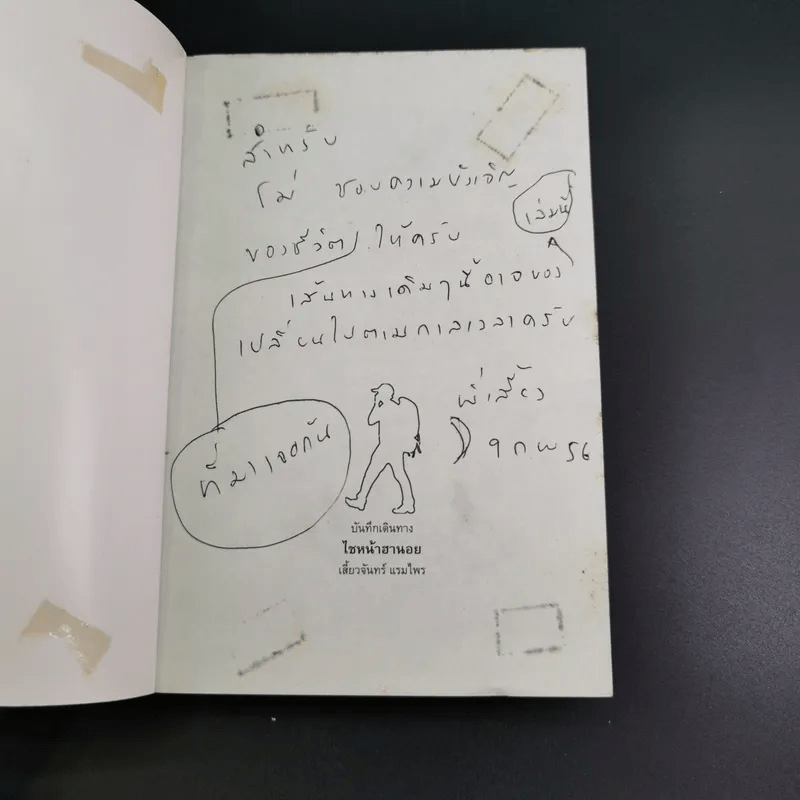 สำหรับ
โม่ ชอบความบังเอิญ
เล่มนี้
ของชีวิต ให้ครับ
เส้นทางเดิมๆ นี้อาจ
เปลี่ยนไปตามกาลเวลาครับ
พี่เสี้ยว
ที่มาเจอกัน
9 กพ 56
บันทึกเดินทาง
ไซหน้าฮานอย
เสี้ยวจันทร์ แรมไพร